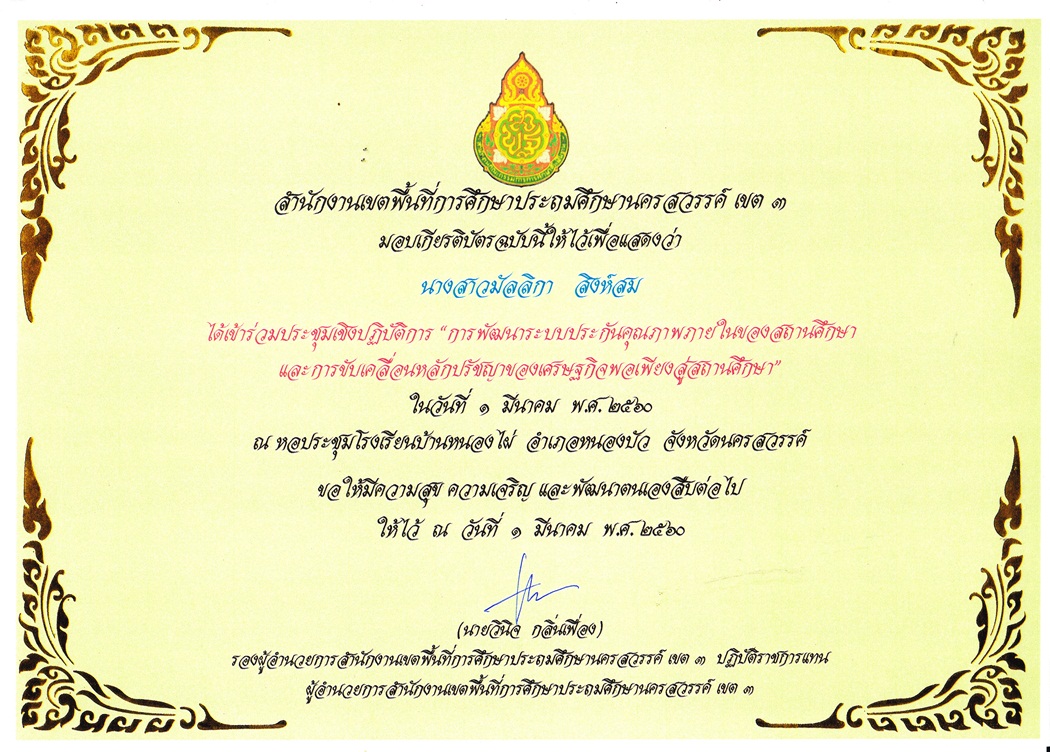 สำนักงานเขตพื้นที่การศึกษาประถมศึกษานครสวรรค์ เขต ๓
มอบเกียรติบัตรฉบับนี้ให้ไว้เพื่อแสดงว่า
นางสาวมัลลิกา สิงห์สม
ได้เข้าร่วมประชุมเชิงปฏิบัติการ “การพัฒนาระบบประกันคุณภาพภายในของสถานศึกษา
และการขับเคลื่อนหลักปรัชญาของเศรษฐกิจพอเพียงสู่สถานศึกษา”
ในวันที่ ๑ มีนาคม พ.ศ. ๒๕๖๐
ณ หอประชุมโรงเรียนบ้านหนองไผ่ อำเภอหนองบัว จังหวัดนครสวรรค์
ขอให้มีความสุข ความเจริญ และพัฒนาตนเองสืบต่อไป
ให้ไว้ ณ วันที่ ๑ มีนาคม พ.ศ. ๒๕๖๐
(นายวินิจ กลิ่นเฟื่อง)
รองผู้อำนวยการสำนักงานเขตพื้นที่การศึกษาประถมศึกษานครสวรรค์ เขต ๓ ปฏิบัติราชการแทน
ผู้อำนวยการสำนักงานเขตพื้นที่การศึกษาประถมศึกษานครสวรรค์ เขต ๓